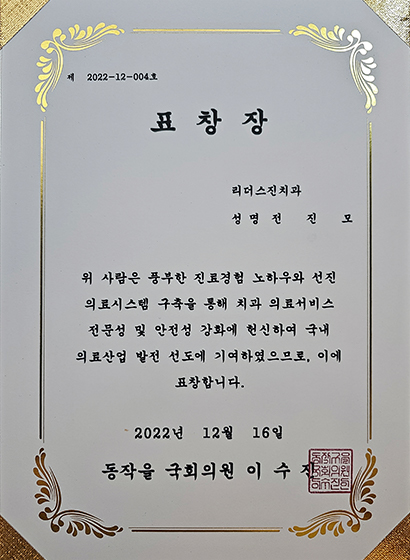 제 2022-12-004호
표 창 장
리더스진치과
성 명 전 진 모
위 사람은 풍부한 진료경험 노하우와 선진
의료시스템 구축을 통해 치과 의료서비스
전문성 및 안전성 강화에 헌신하여 국내
의료산업 발전 선도에 기여하였으므로, 이에
표창합니다.
2022년 12월 16일
동작을 국회의원 이 수 진